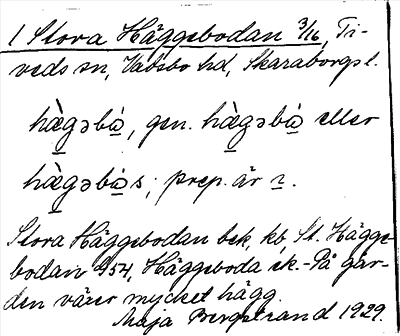 1 Stora Häggebodan 3/16, Ti-
veds sn, Vadsbo hd, Skaraborgs l.
hàgəbà, gen. hàgəbà eller
hàgəbàs; prep. är
Stora Häggebodan bek. kb, St. Hägge-
bodan G54, Häggeboda ek. - På går-
den växer mycket hägg.
Maja Bergstrand 1929.